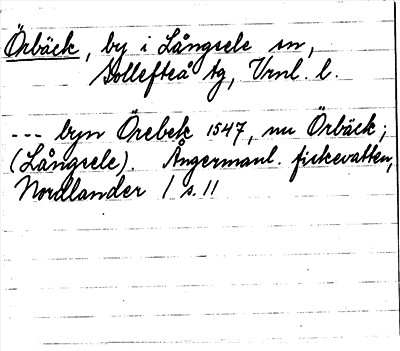 Örbäck, by i Långsele sn,
Sollefteå tg, Vrnl. l.
--- byn Örebek 1547, nu Örbäck;
(Långsele). Ångermanl. fiskevatten,
Nordlander 1 s. 11